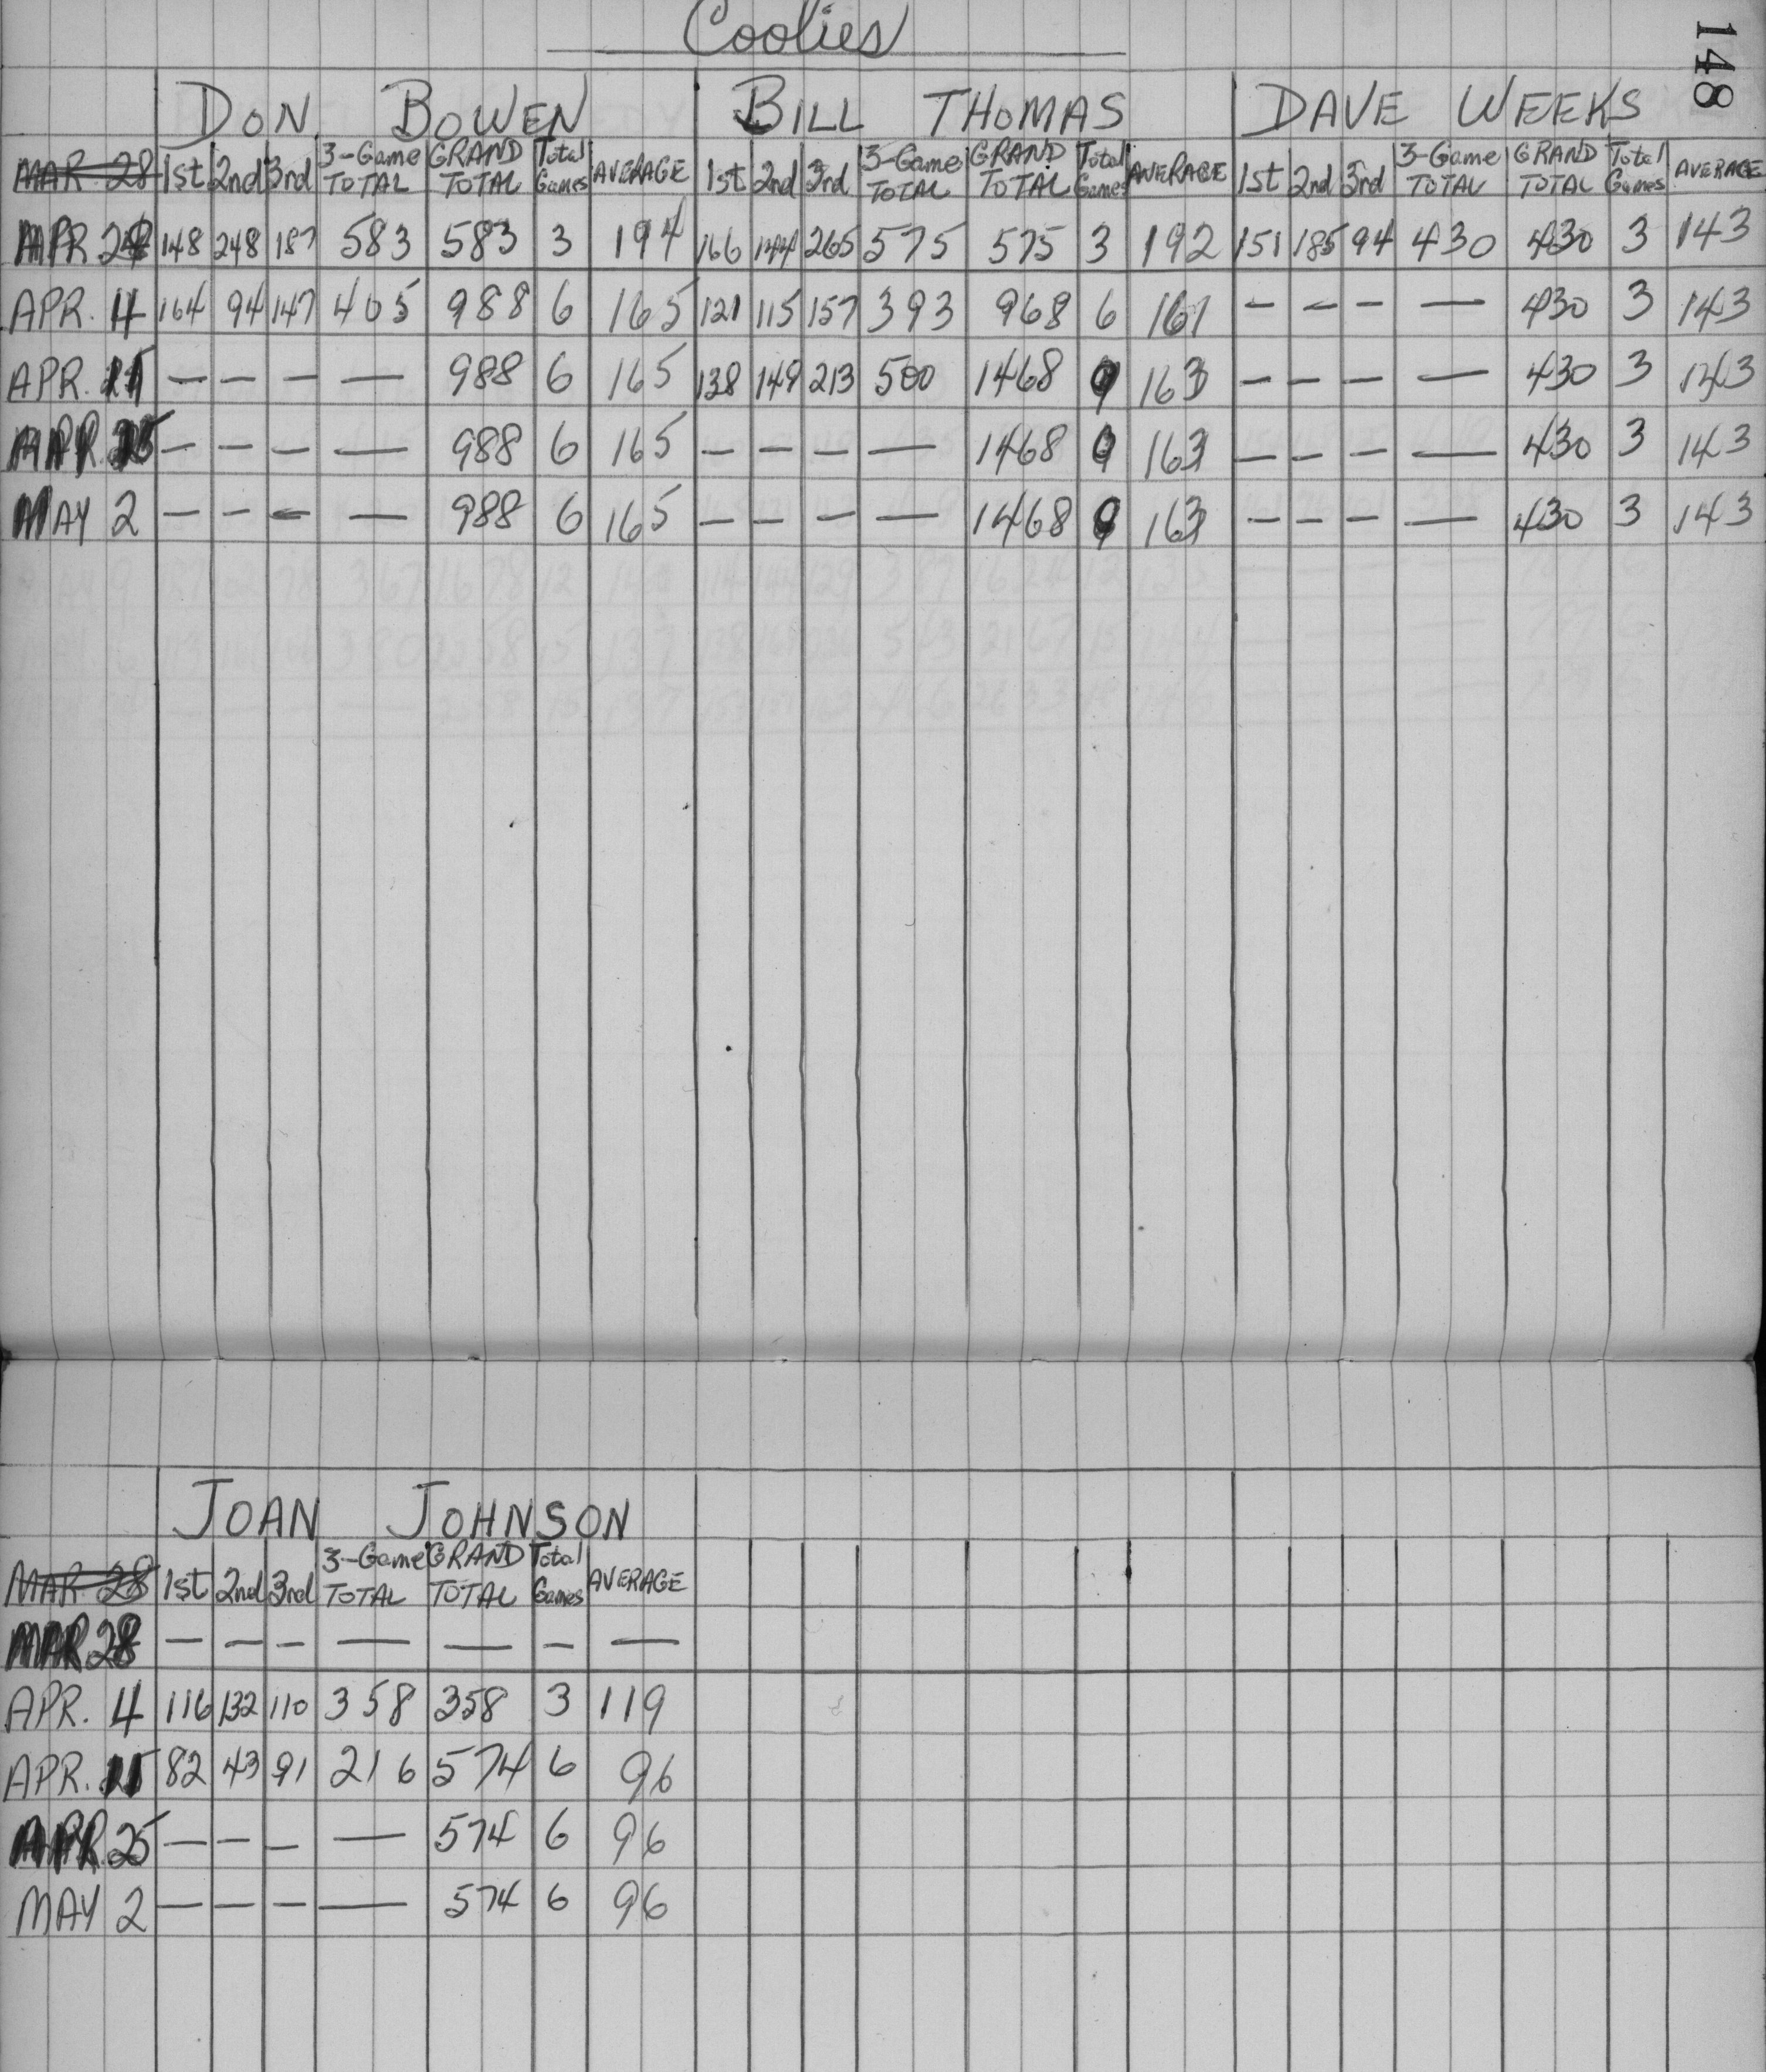 Coolies
148
DON BOWEN BILL THOMAS DAVE WEEKS
MAR 28 1st 2nd 3rd 3-Game TOTAL GRAND TOTAL Total Games AVERAGE 1st 2nd 3rd 3-Game TOTAL GRAND TOTAL Total Games AVERAGE 1st 2nd 3rd 3-Game TOTAL GRAND TOTAL Total Games AVERAGE
148 248 187 583 583 3 194 166 144 265 575 575 3 192 151 185 94 430 430 3 143
APR. 4 164 94 147 405 988 6 165 121 115 157 393 968 6 161 - - - — 430 3 143
APR. — - - — 988 6 165 138 149 213 500 1468 9 163 - - - — 430 3 143
- - - — 988 6 165 - - - — 1468 9 163 - - - — 430 3 143
MAY 2 - - - — 988 6 165 - - - — 1468 9 163 - - - — 430 3 143
JOAN JOHNSON
MAR 28 1st 2nd 3rd 3-Game TOTAL GRAND TOTAL Total Games AVERAGE
MAR 28 - - - — — - —
APR. 4 116 132 110 358 358 3 119
APR. 82 43 91 216 574 6 96
APR 25 - - - — 574 6 96
MAY 2 - - - — 574 6 96